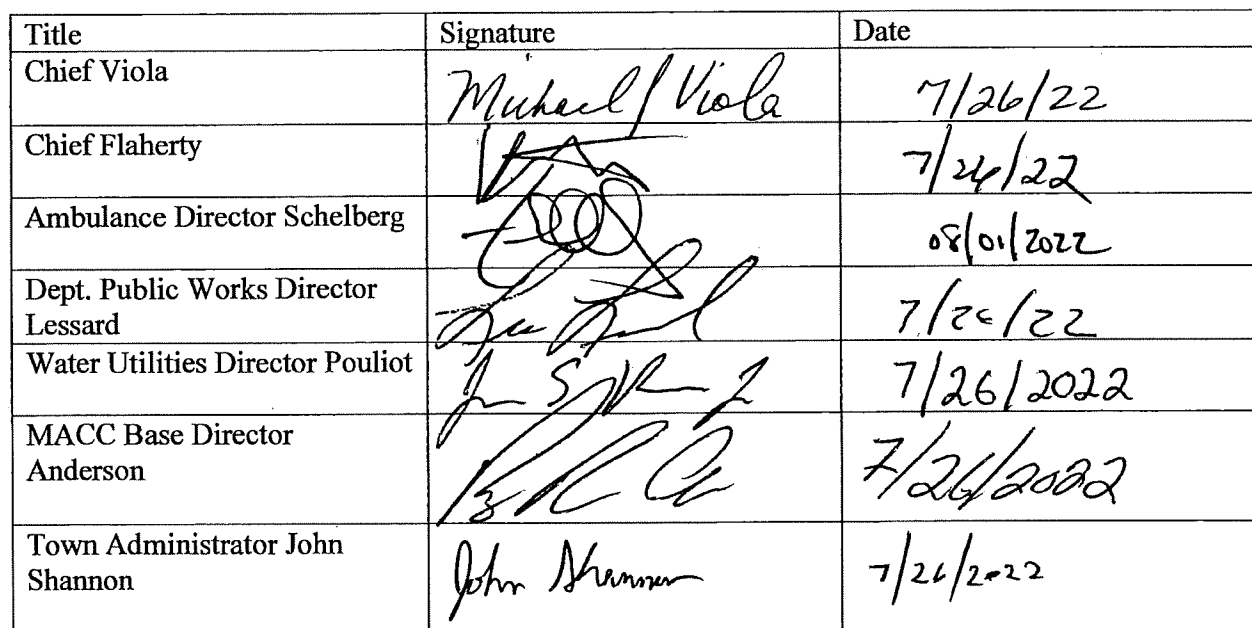 Title Signature Date
Chief Viola Michael J Viola 7/26/22
Chief Flaherty 7/26/22
Ambulance Director Schelberg 08/01/2022
Dept. Public Works Director
Lessard 7/26/22
Water Utilities Director Pouliot 7/26/2022
MACC Base Director
Anderson 7/26/2022
Town Administrator John
Shannon John Shannon 7/26/2022